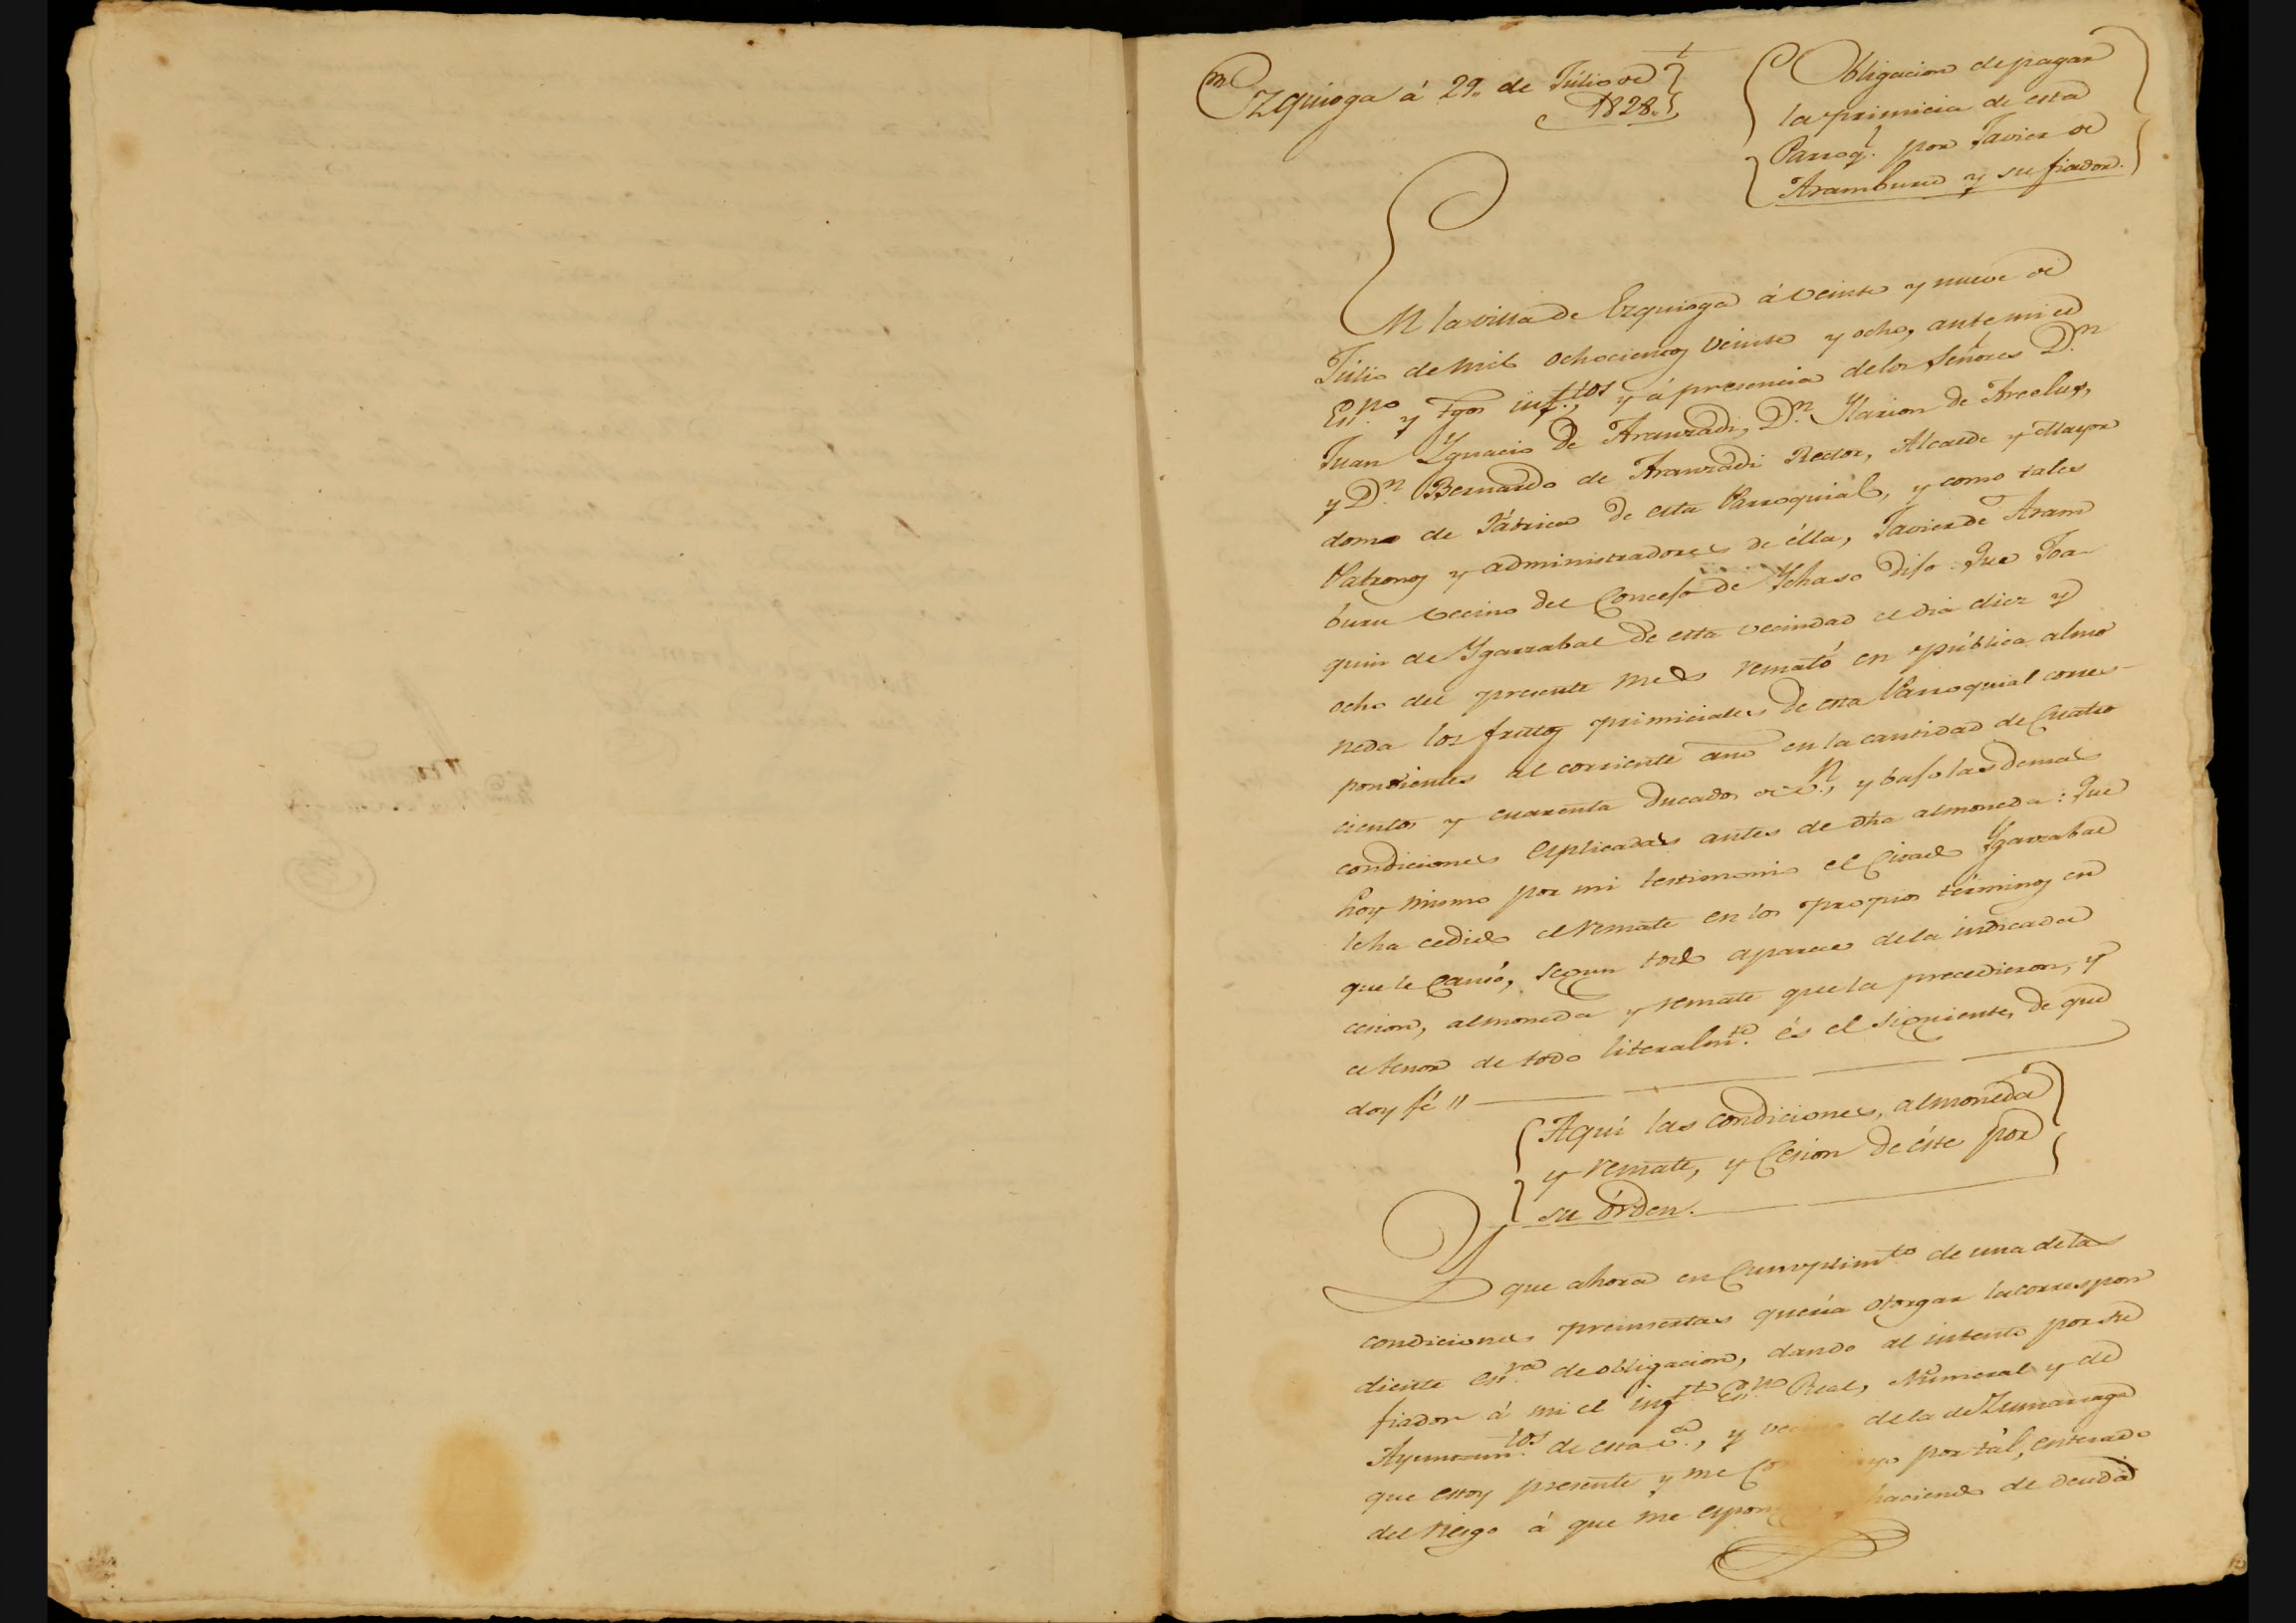 En Ezquioga á 29. de Júlio de
1828.
Obligacion de pagar
la primicia de esta
Parroq.l por Javier de
Aramburu y su fiador.
En la villa de Ezquioga á veinte y nueve de
Júlio de mil ochocientos veinte y ocho, ante mi el
Es.no y tgos inf.tos, y á presencia de los Señores D.n
Juan Ygnacio de Aranzadi, D.n Ylarion de Arcelus,
y D.n Bernardo de Aranzadi Rector, Alcalde y Mayor
domo de Fábrica de esta Parroquial, y como tales
Patronos y administradores de élla, Javier de Aram
buru vecino del Concejo de Ychaso dijo: Que Joa-
quin de Ygarzabal de esta vecindad el dia diez y
ocho del presente mes remató en pública almo
neda los frutos primiciales de esta Parroquial corres-
pondientes al corriente año en la cantidad de Cuatro
cientos y cuarenta ducados de v.n, y bajo las demas
condiciones esplicadas antes de dha almoneda: Que
hoy mismo por mi testimonio el Citado Ygarzabal
le ha cedido el remate en los propios términos en
que le Causó, segun todo aparece de la indicada
cesion, almoneda y remate que la precedieron, y
el tenor de todo literalm.te és el siguiente, de que
doy fé "
Aquí las condiciones, almoneda
y remate, y Cesion de éste por
su órden.
Y que ahora en Cumplim.to de una de las
condiciones preinsertas queria otorgar la correspon
diente es.ra de obligacion, dando al intento por su
fiador á mi el inf.to Es.no Real, Numeral y de
Ayuntam.tos de esta v.a, y de la de Zumarraga
que estoy presente y me por tál, enterado
del riesgo á que me haciendo de deuda